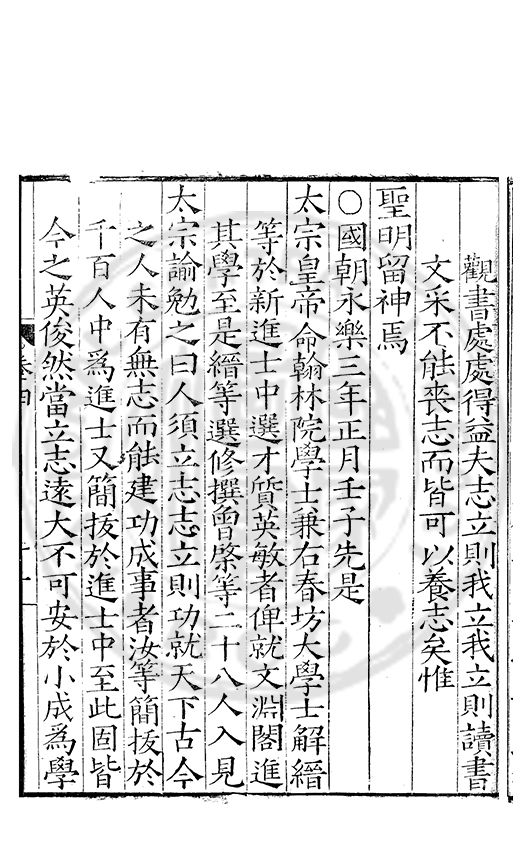 觀書處處得益夫志立則我立我立則讀書
文采不能喪志而皆可以養志矣惟
聖明留神焉
○國朝永樂三年正月壬子先是
太宗皇帝命翰林院學士兼右春坊大學士解縉
等於新進士中選才質英敏者俾就文淵閣進
其學至是縉等選修撰曾棨等二十八人入見
太宗諭勉之曰人須立志志立則功就天下古今
之人未有無志而能建功成事者汝等簡拔於
千百人中爲進士又簡拔於進士中至此固皆
今之英俊然當立志遠大不可安於小成爲學
卷四